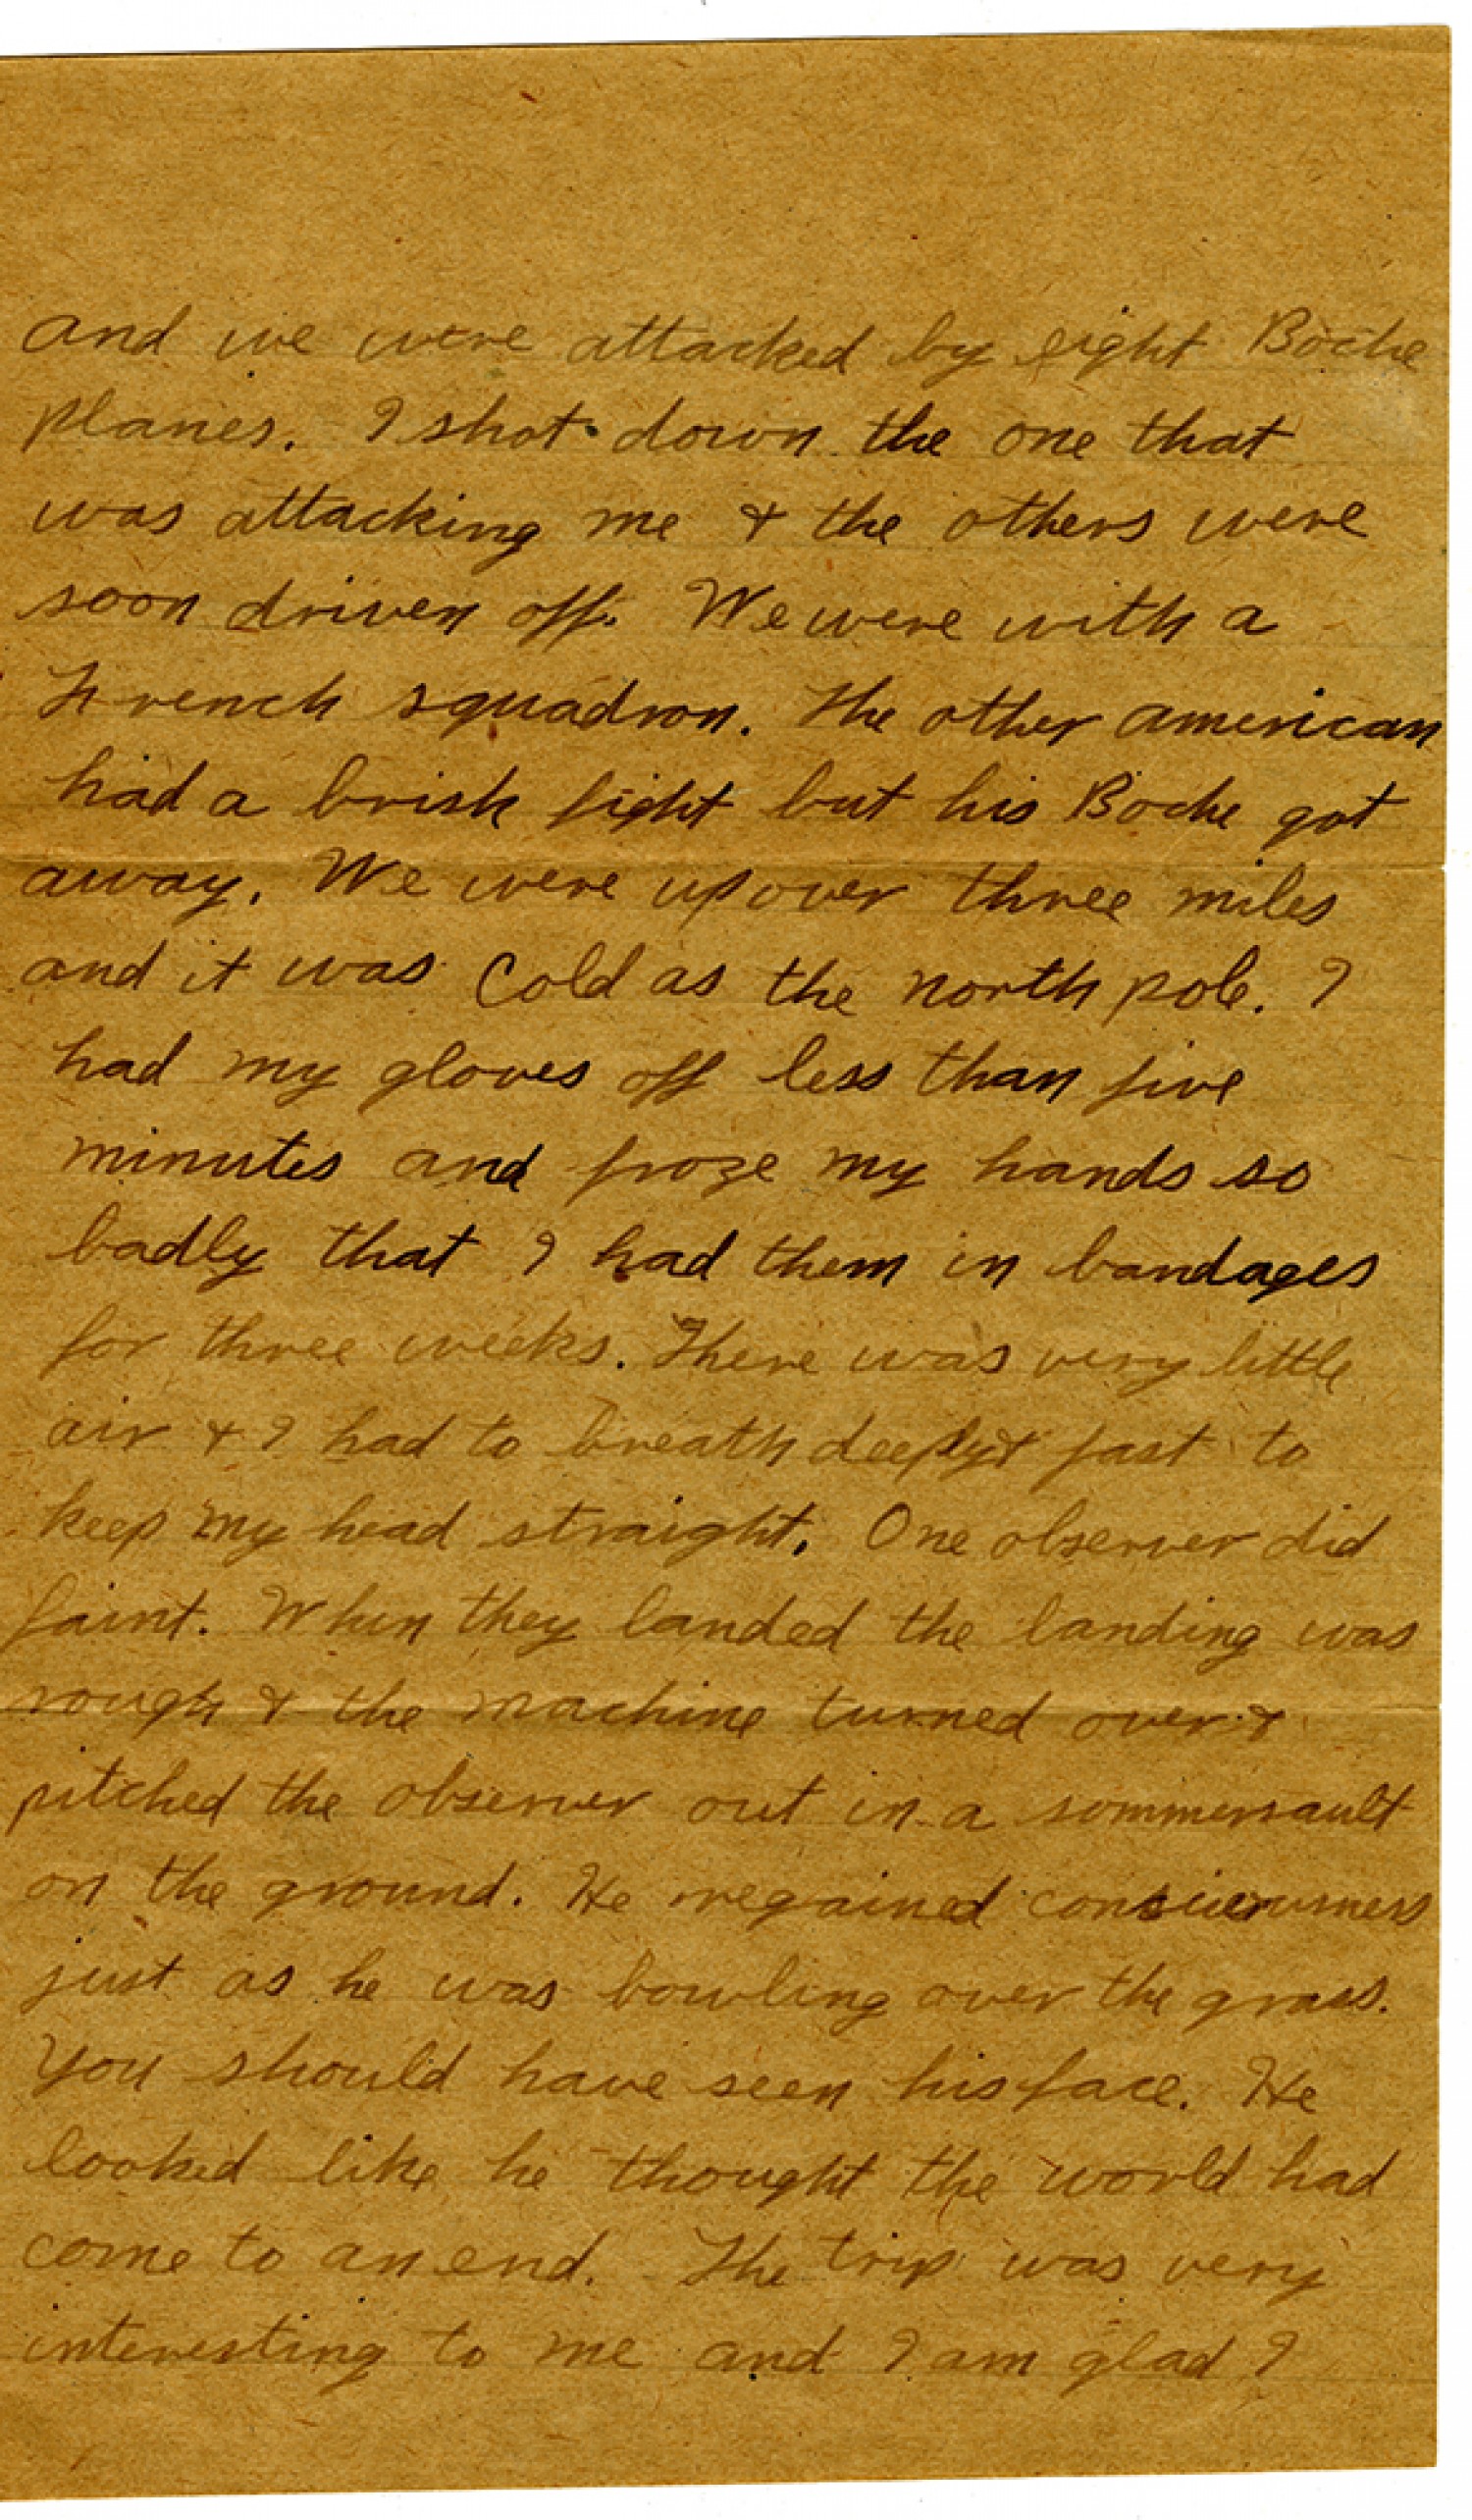 and we were attacked by eight Boche
planes. I shot down the one that
was attacking me & the others were
soon driven off. We were with a
French squadron. The other american
had a brisk fight but his Boche got
away. We were up over three miles
and it was cold as the north pole. I
had my gloves off less than five
minutes and froze my hands so
badly that I had them in bandages
for three weeks. There was very little
air & I had to breath deeply & fast to
keep my head straight. One observer did
faint. When they landed the landing was
rough & the machine turned over &
pitched the observer out in a sommersault
on the ground. He regained
just as he was bowling over the grass.
You should have seen his face. He
looked like he thought the world had
come to an end. The trip was very
interesting to me and I am glad I